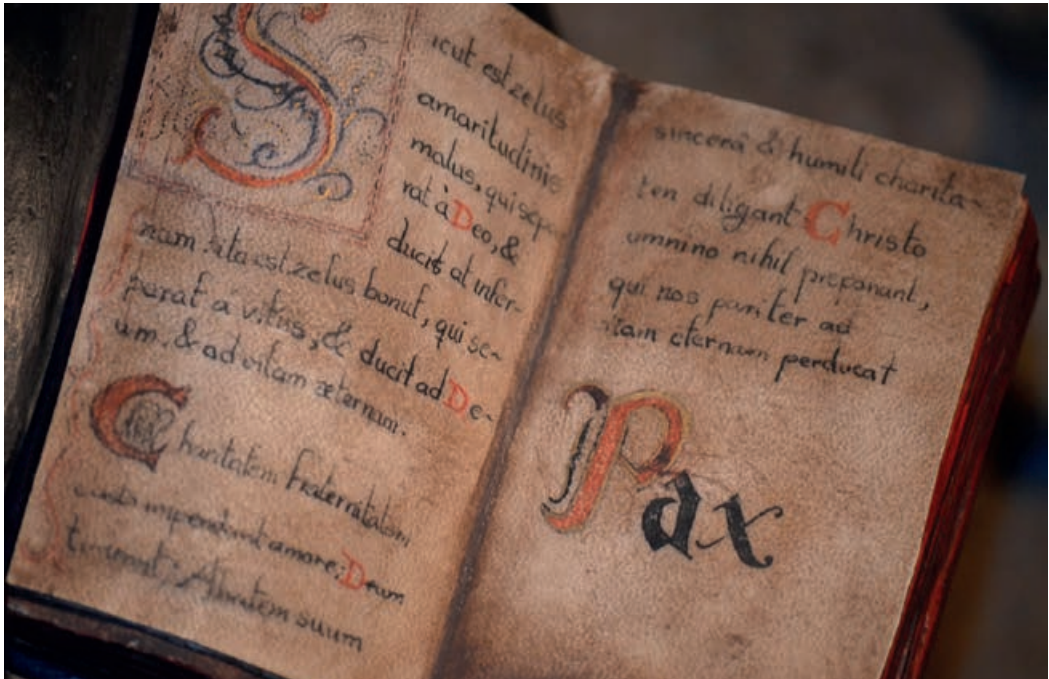 Sicut est zelus
amaritudinis
malus, qui sepa-
rat à Deo, &
ducit at infer-
nam. ita est zelus bonut, qui se-
parat a vitus, & ducit ad De-
um, & ad vitam æternam.
Charitatem fraternitatem
impendant amore; Deum
timeant; Abatem suum
sincera & humili charita-
ten diligant Christo
omnino nihil preponant,
qui nos pariter ad
vitam eternam perducat
Pax